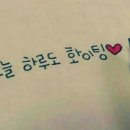 늘 하루도 화이팅♥